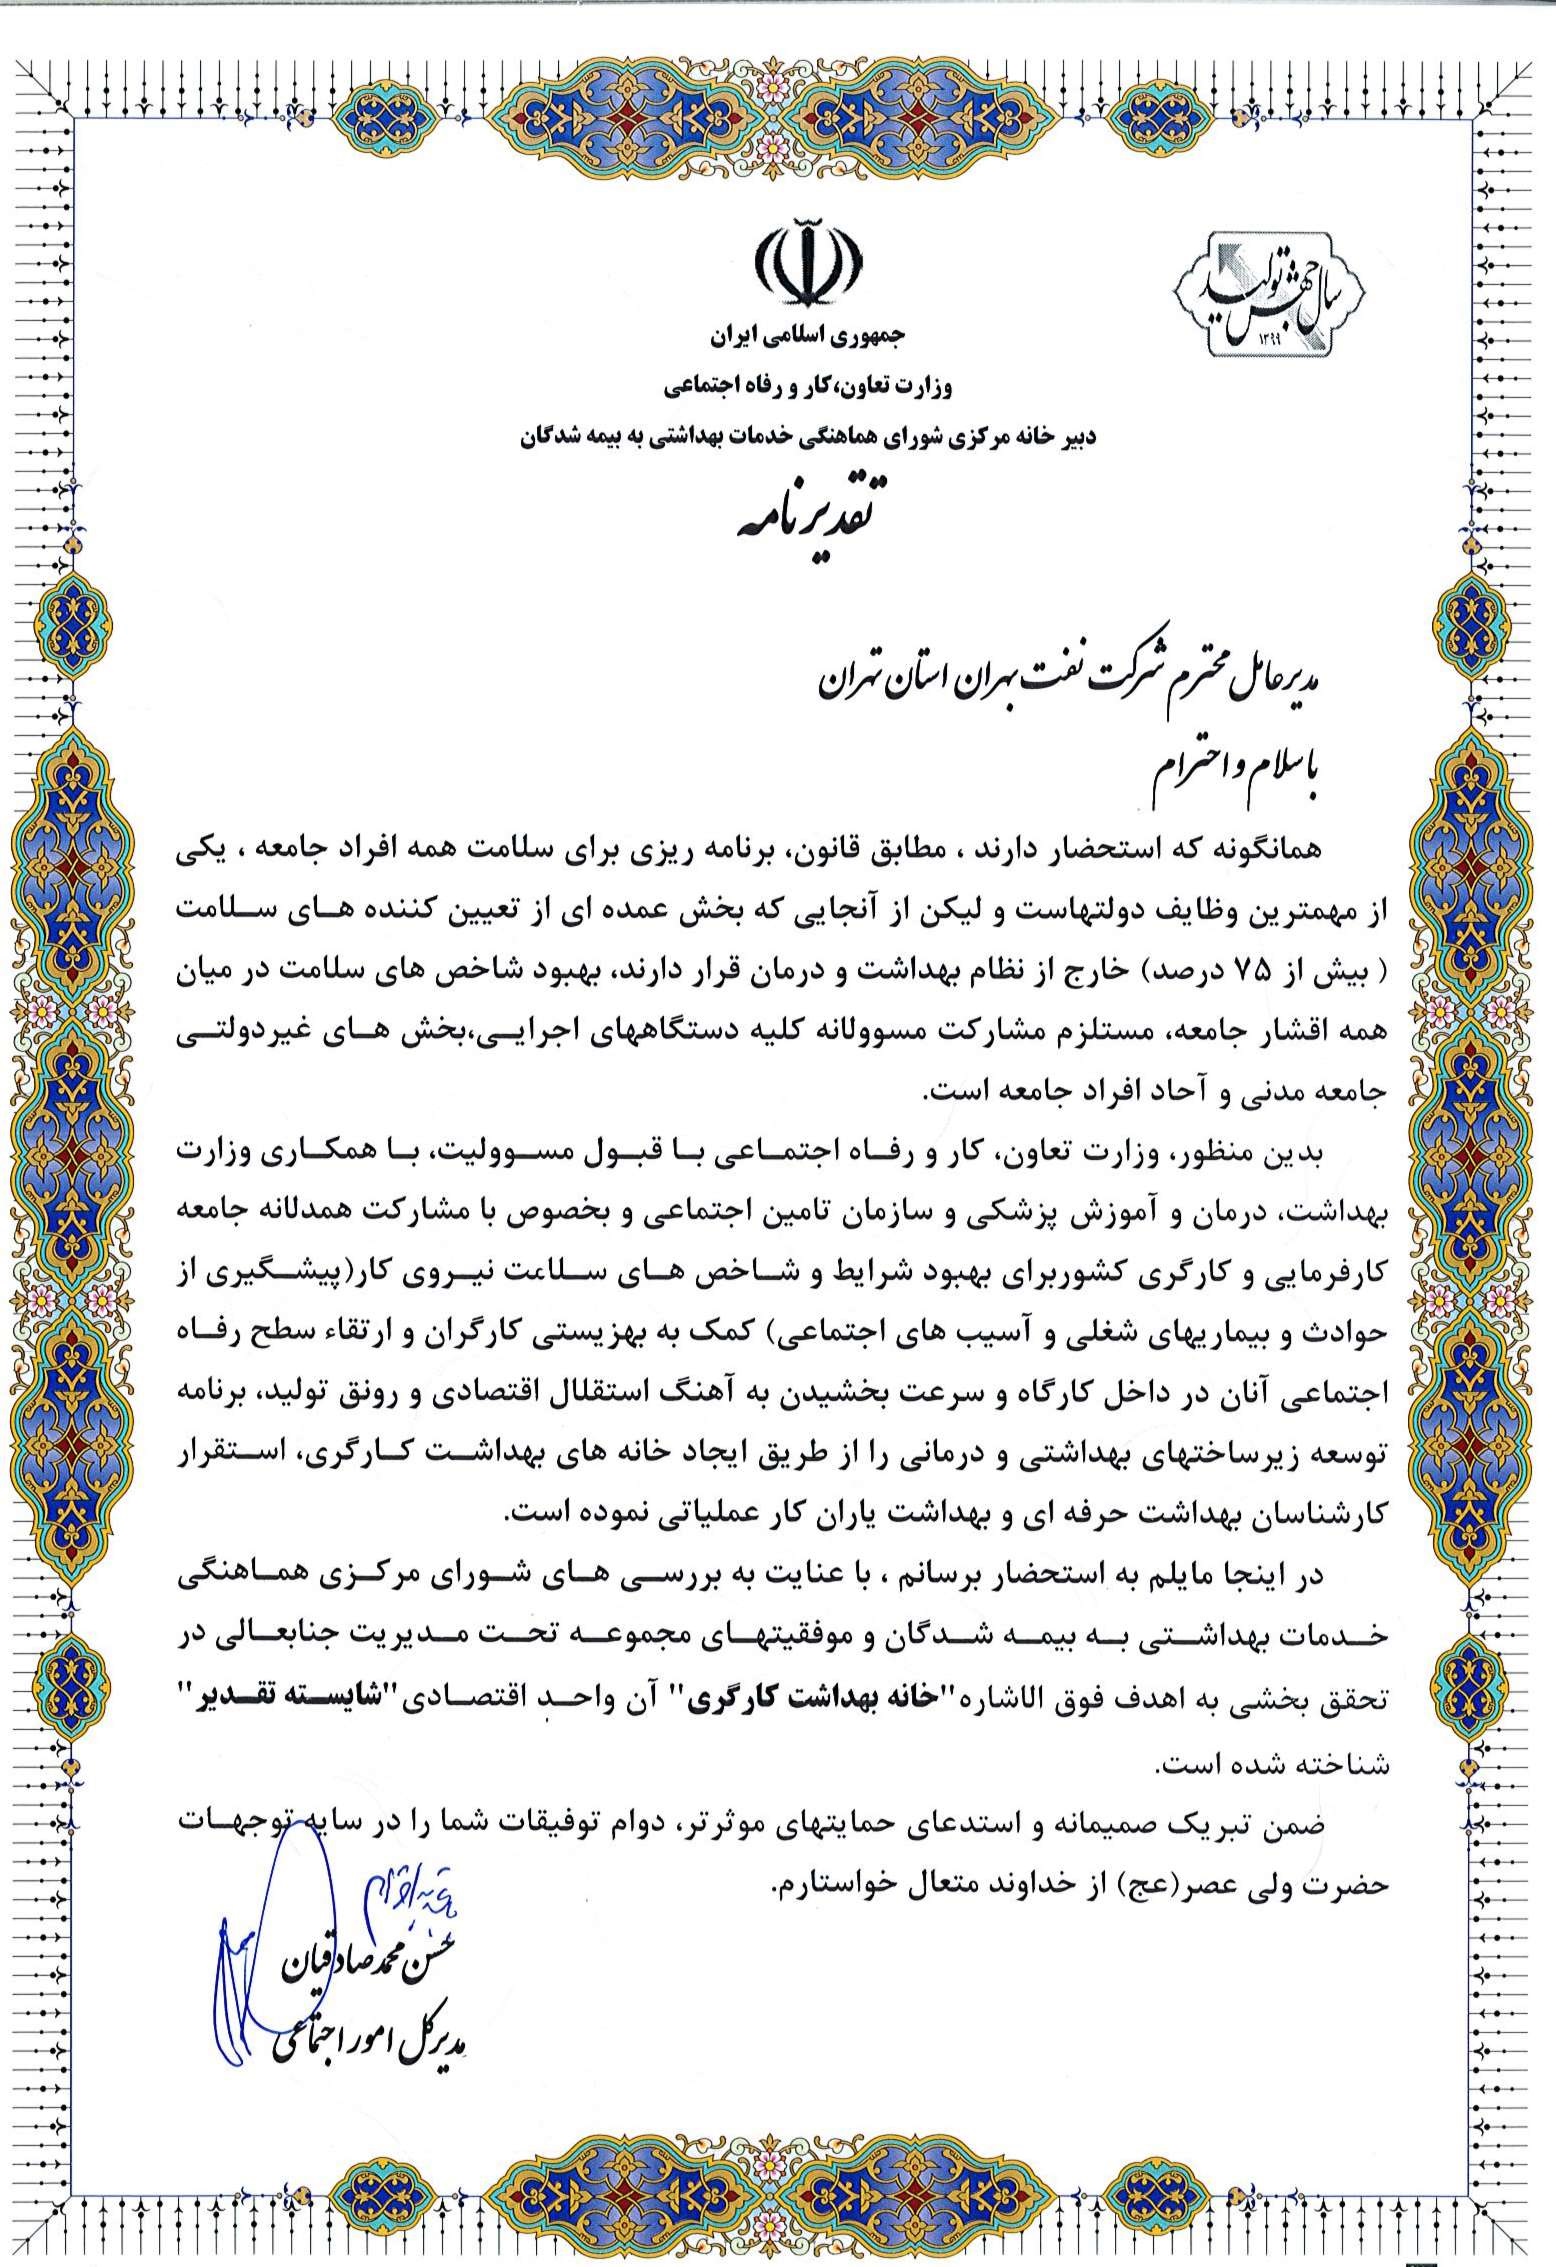 سال جهش تولید
۱۳۹۹
جمهوری اسلامی ایران
وزارت تعاون،کار و رفاه اجتماعی
دبیر خانه مرکزی شورای هماهنگی خدمات بهداشتی به بیمه شدگان
تقدیرنامه
مدیرعامل محترم شرکت نفت بهران استان تهران
با سلام و احترام
همانگونه که استحضار دارند ، مطابق قانون، برنامه ریزی برای سلامت همه افراد جامعه ، یکی
از مهمترین وظایف دولتهاست و لیکن از آنجایی که بخش عمده ای از تعیین کننده های سلامت
( بیش از ۷۵ درصد) خارج از نظام بهداشت و درمان قرار دارند، بهبود شاخص های سلامت در میان
همه اقشار جامعه، مستلزم مشارکت مسوولانه کلیه دستگاههای اجرایی،بخش های غیردولتی
جامعه مدنی و آحاد افراد جامعه است.
بدین منظور، وزارت تعاون، کار و رفاه اجتماعی با قبول مسوولیت، با همکاری وزارت
بهداشت، درمان و آموزش پزشکی و سازمان تامین اجتماعی و بخصوص با مشارکت همدلانه جامعه
کارفرمایی و کارگری کشوربرای بهبود شرایط و شاخص های سلامت نیروی کار(پیشگیری از
حوادث و بیماریهای شغلی و آسیب های اجتماعی) کمک به بهزیستی کارگران و ارتقاء سطح رفاه
اجتماعی آنان در داخل کارگاه و سرعت بخشیدن به آهنگ استقلال اقتصادی و رونق تولید، برنامه
توسعه زیرساختهای بهداشتی و درمانی را از طریق ایجاد خانه های بهداشت کارگری، استقرار
کارشناسان بهداشت حرفه ای و بهداشت یاران کار عملیاتی نموده است.
در اینجا مایلم به استحضار برسانم ، با عنایت به بررسی های شورای مرکزی هماهنگی
خدمات بهداشتی به بیمه شدگان و موفقیتهای مجموعه تحت مدیریت جنابعالی در
تحقق بخشی به اهدف فوق الاشاره "خانه بهداشت کارگری" آن واحد اقتصادی "شایسته تقدیر"
شناخته شده است.
ضمن تبریک صمیمانه و استدعای حمایتهای موثرتر، دوام توفیقات شما را در سایه توجهات
حضرت ولی عصر(عج) از خداوند متعال خواستارم.
محمدصادقیان
مدیرکل امور اجتماعی